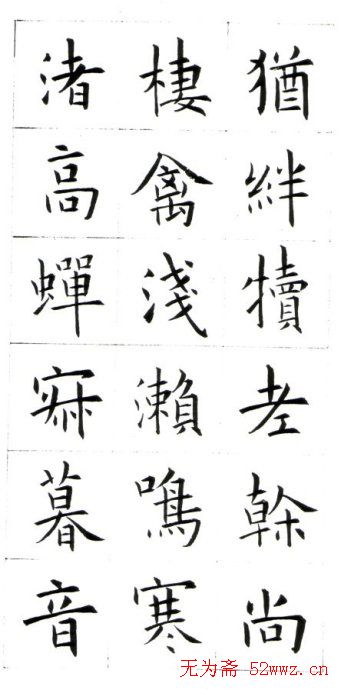 猶絆犢老榦尚
棲禽淺瀨鳴寒
渚高蟬寂暮音
无为斋-52wwz.cn